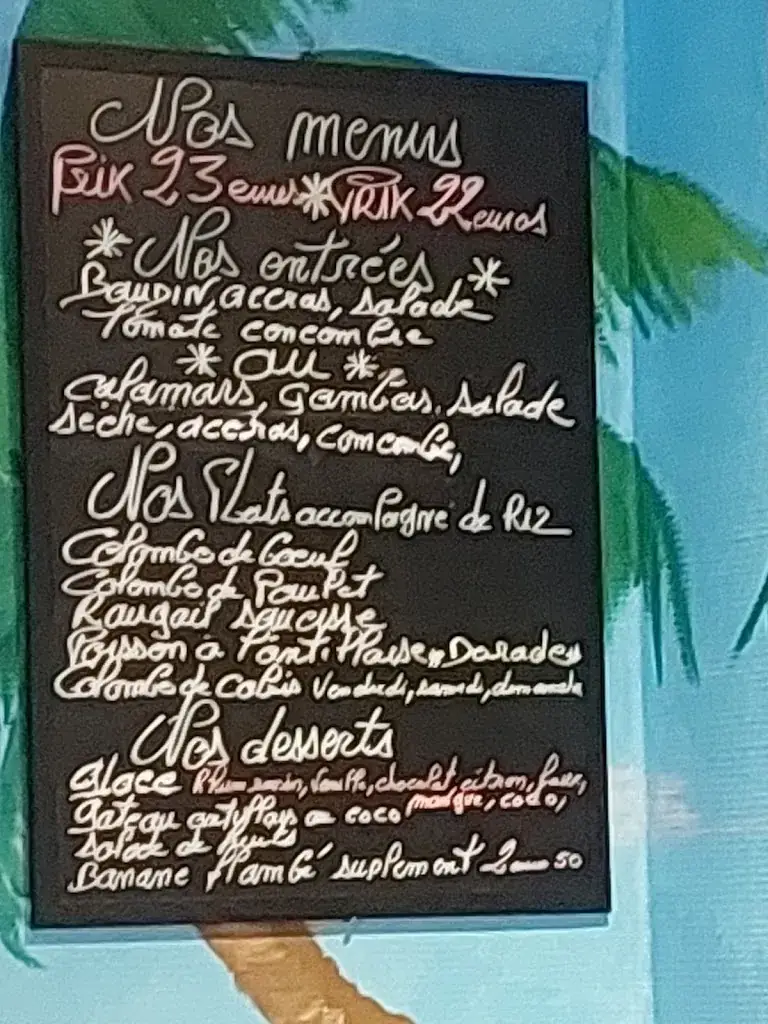 Nos menus
Prix 23 euros * PRIX 22 euros
* Nos entrées *
BOUDIN, accras, salade
Tomate concombre
* ou *
calamars, gambas, salade
sèche, accras, concombre,
Nos Plats accompagné de RIZ
Colombo de boeuf
Colombo de Poulet
Rougail saucisse
Poisson a l'antillaise " Dorade "
Colombo de cabris vendredi, samedi, dimanche
Nos desserts
Glace Rhum raisin, vanille, chocolat, citron,
mangue, coco,
gateau antillais a coco
salade de fruits
BANANE flambé suplement 2 euro 50